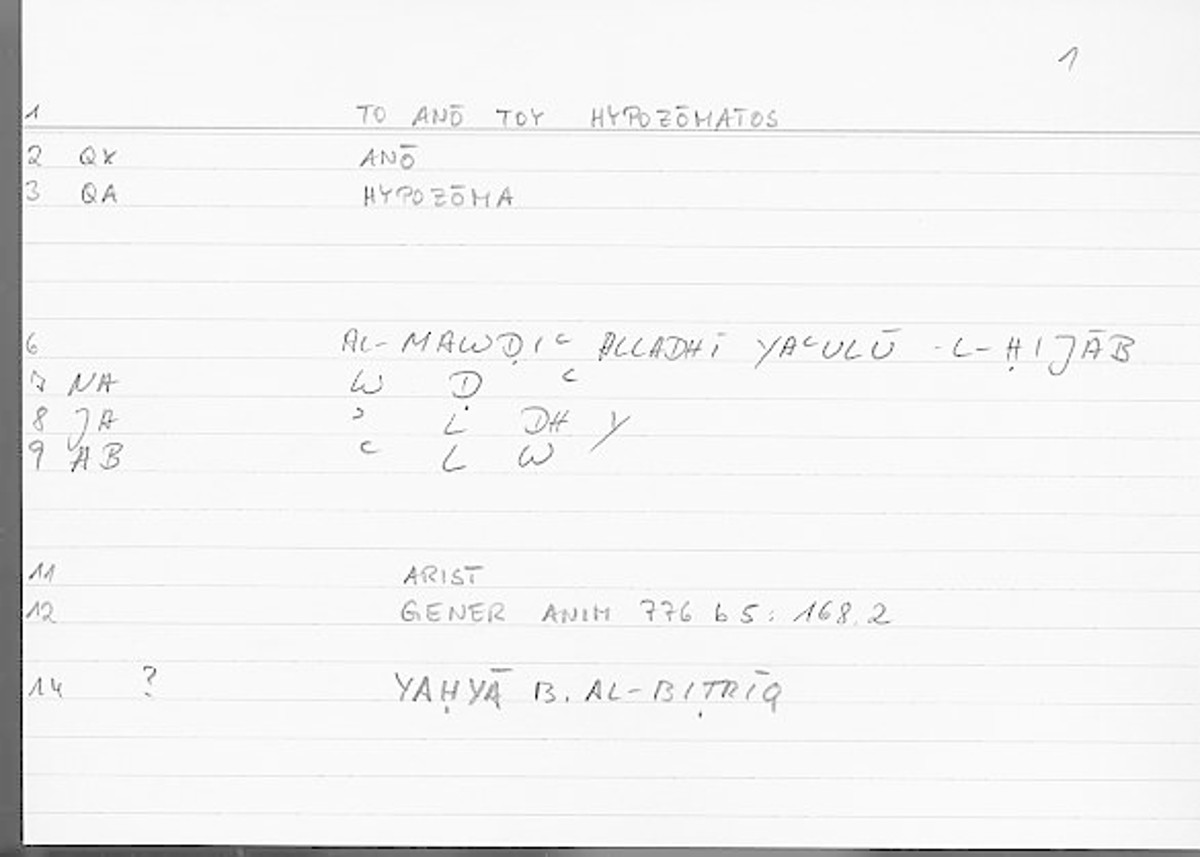 1
1 TO ANŌ TOY HYPOZŌMATOS
2 QX ANŌ
3 QA HYPOZŌMA
6 AL-MAWḌIʿ ALLADHĪ YAʿULŪ -L-ḤIJĀB
7 NA W Ḍ ʿ
8 JA ʾ L DH Y
9 AB ʿ L W
11 ARIST
12 GENER ANIM 776 b 5 : 168.2
14 ? YAḤYĀ B. AL-BIṬRĪQ